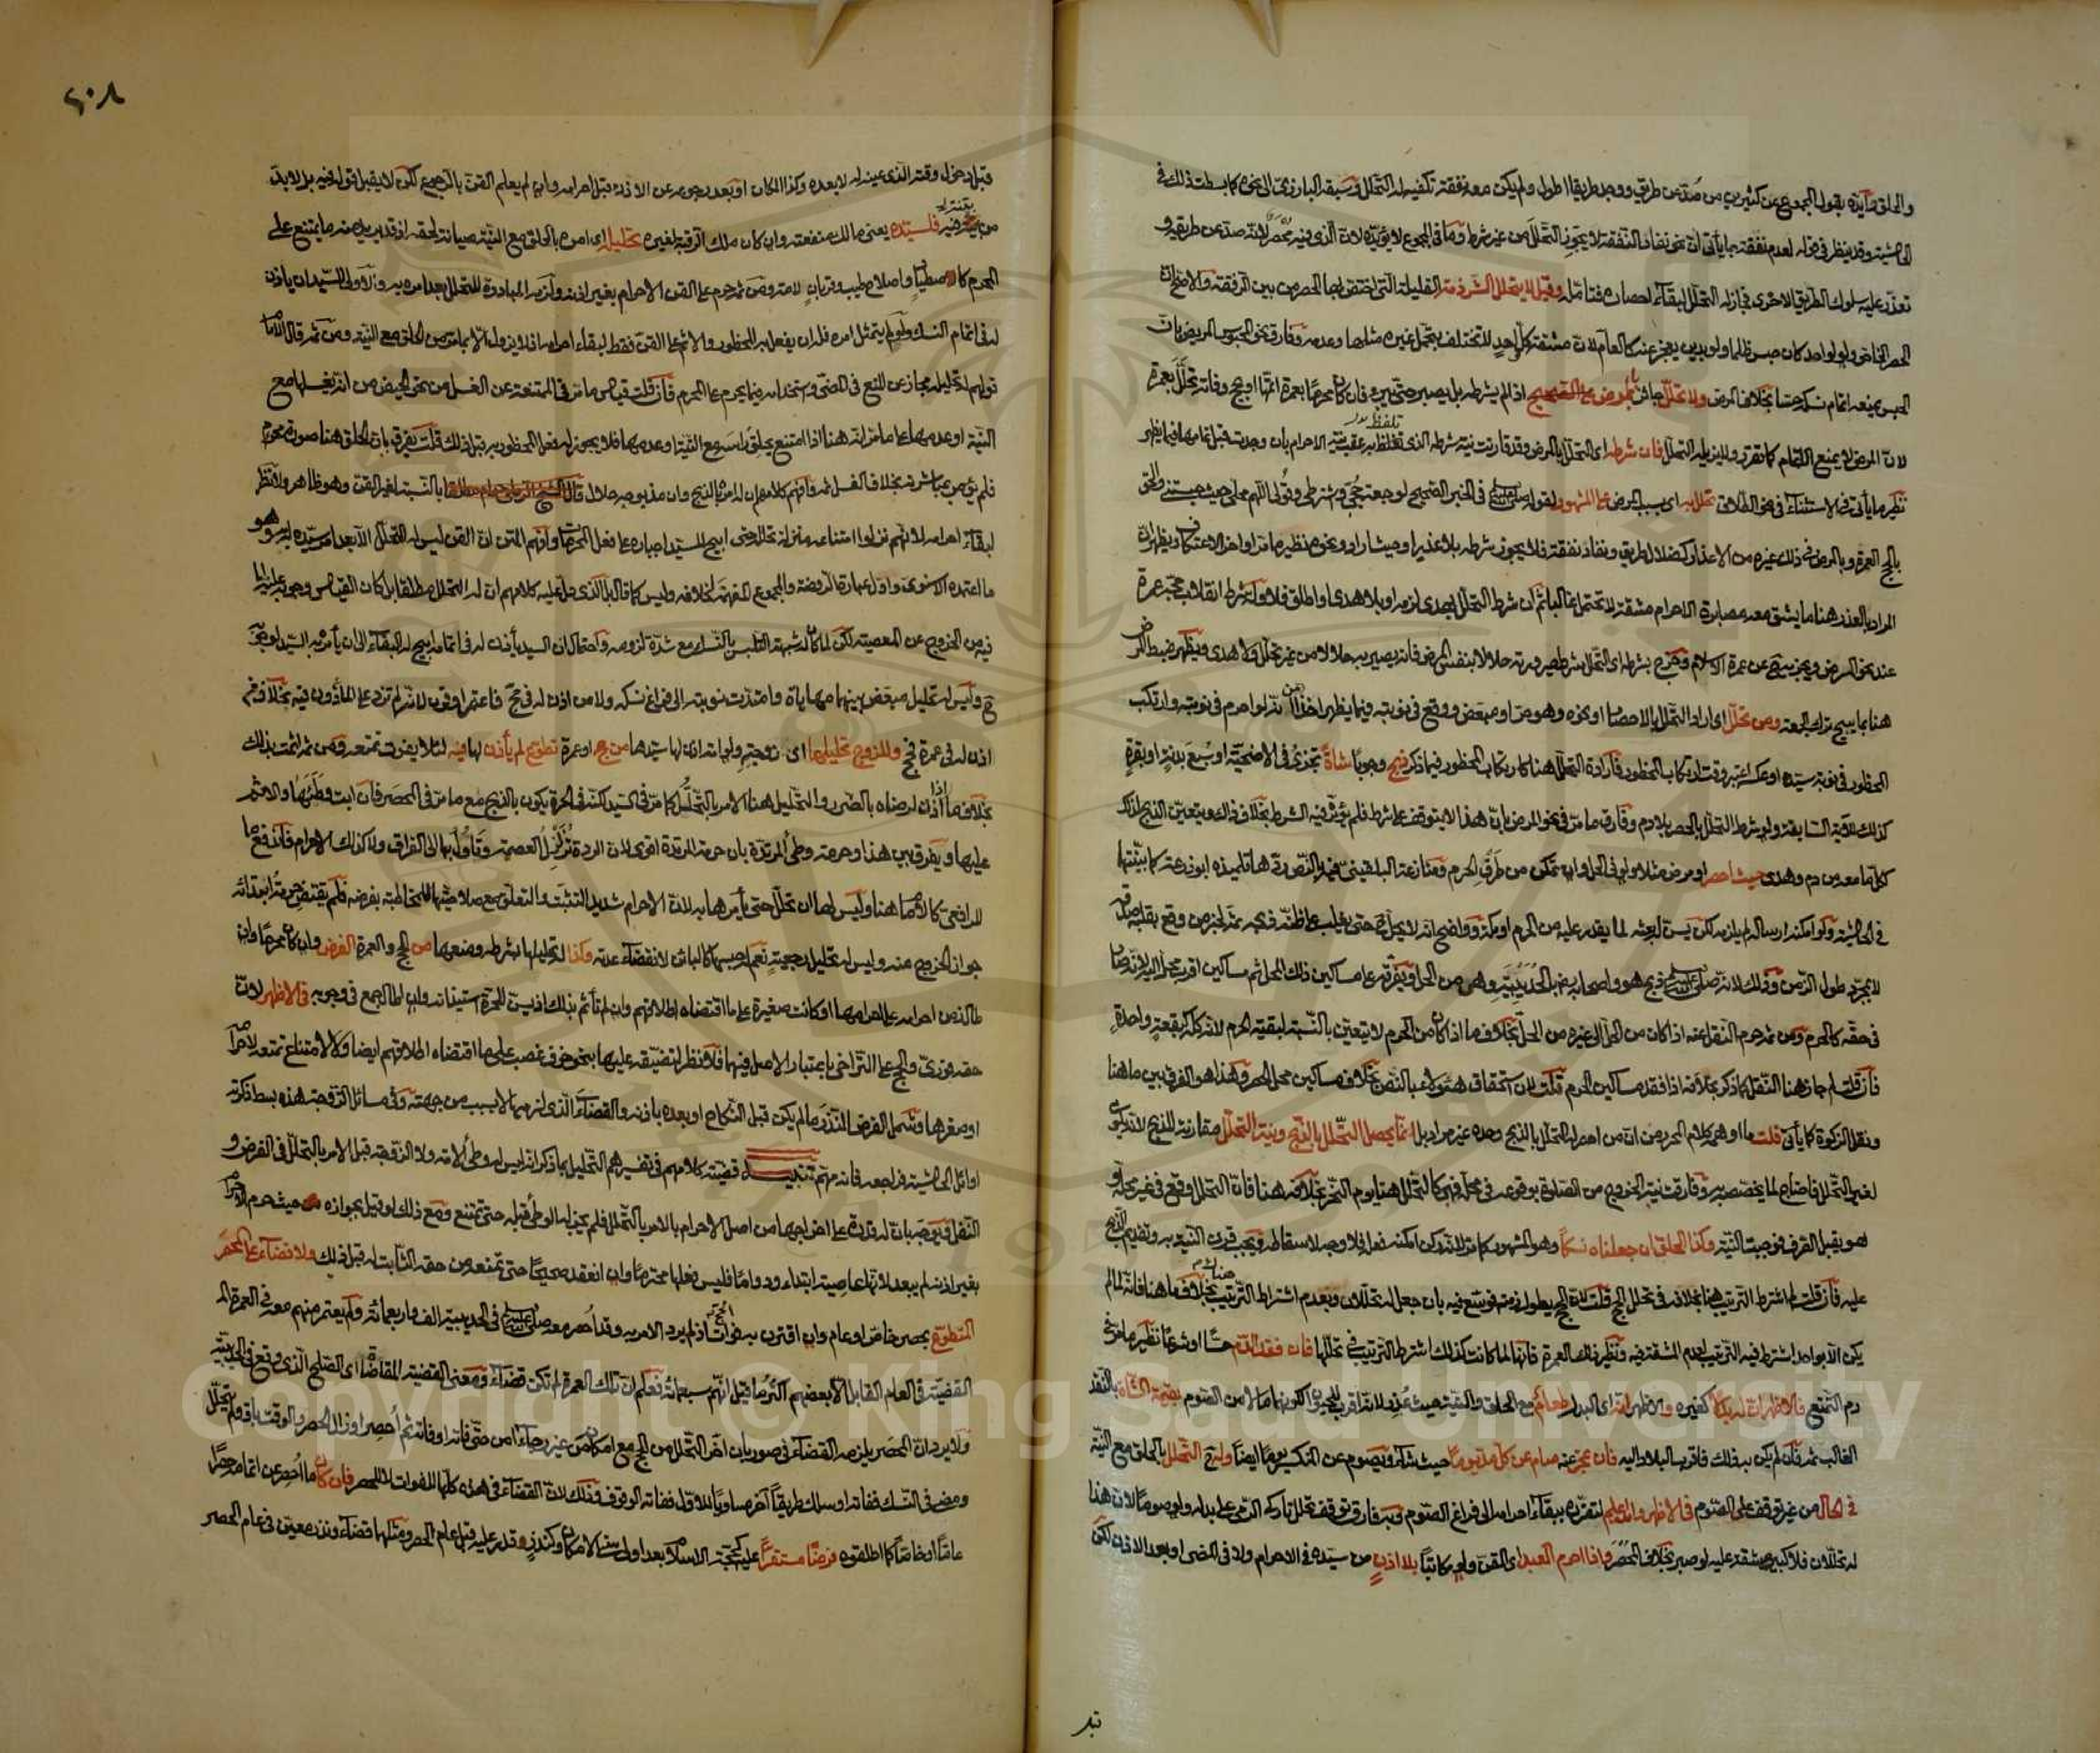 والحلق وأيده بقول المجموع عن كثيرين من صد عن طريق ووجد طريقا اطول ولم يكن معه نفقة تكفيه له التحلل وسبقه البارزي الى نحوه كما بسطت ذلك في
الحاشية وقد ينظر في قوله لعدم نفقة بما يأتي ان نحو نفاد النفقة لا يجوز التحلل من غير شرط وما في المجموع لا يؤيده لان الذي فيه محصر لانه صد عن طريقه و
تعذر عليه سلوك الطريق الاخرى فجاز له التحلل لبقاء احصاره فتأمله وقيل لا تتحلل الشرذمة القليلة التي اختص بها الحصر من بين الرفقة والاصح ان
الحصر الخاص ولو لواحد كان حبس ظلما ولو بدين يعجز عنه كالعام لان مشقة كل واحد لا تختلف بتحمل غيره مثلها وعدمه وفارق نحو المحبوس المريض بان
الحبس يمنعه اتمام نسكه حسا بخلاف المرض ولا تحلل بالمرض على الصحيح اذا لم يشرطه بل يصبر حتى يبرء فان كان محرما بعمرة اتمها او بحج وفاته تحلل بعمرة
لان المرض لا يمنع الاتمام كما تقرر ولا يزيله التحلل فان شرطه اى التحلل بالمرض وقد قارنت نية شرطه الذي تلفظ به عقب نية الاحرام بان وجدت قبل تمامها فيما يظهر
نظير ما يأتي في الاستثناء في نحو الطلاق تحلل به اى بسبب المرض على المشهور لقوله صلى الله عليه وسلم في الخبر الصحيح لوجعة حجى واشترطي وقولى اللهم محلى حيث حبستني والحق
بالحج العمرة وبالمرض في ذلك غيره من الاعذار كضلال الطريق ونفاد نفقة فلا يجوز شرطه بلا عذر او حيث اراد ونحوه نظير ما مر اواخر الاعتكاف ويظهر ان
المراد بالعذر هنا ما يشق معه مصابرة الاحرام مشقة لا تحتمل غالبا ثم ان شرط التحلل بهدى لزمه او بلا هدى او اطلق فلا وله شرط انقلاب حجه عمرة
عند نحو المرض ويجزيه عن عمرة الاسلام وخرج بشرطه اى التحلل شرط صيرورته حلالا بنفس المرض فانه يصير به حلالا من غير تحلل ولا هدى ويظهر ضبط المرض
هنا بما يبيح ترك الجمعة ومن تحلل اى اراد التحلل بالاحصار او نحوه وهو حر او مبعض ووقع في نوبته فيما يظهر اخذا من انه لو احرم في نوبته وارتكب
المحظور في نوبة سيده او عكسه اعتبر وقت ارتكاب المحظور فارادة التحلل هنا كارتكاب المحظور فيما ذكر ذبح وجوبا شاة تجزئ في الاضحية او سبع بدنة او بقرة
كذلك للآية السابقة ولو شرط التحلل بالحصر بلا دم وفارق ما مر في نحو المرض بان هذا لا يتوقف على شرط فلم يؤثر فيه الشرط بخلاف ذاك ويتعين الذبح لذلك
كل ما معه من دم وهدى حيث احصر او مرض مثلا ولو في الحل وان تمكن من طرف الحرم ومنازعة البلقيني فيه بالنص ردها تلميذه ابو زرعة كما بينتها
في الحاشية ولو امكنه ارساله لم يلزمه لكن يسن له بعثه لما يقدر عليه من الحرم او مكة وواضح انه لا يحل حتى يغلب على ظنه ذبحه ثم بخبر من وقع بقلبه صدقه
لا بمجرد طول الزمن وذلك لانه صلى الله عليه وسلم ذبح هو واصحابه بالحديبية وهي من الحل ويفرقه على مساكين ذلك المحل ثم مساكين اقرب محل اليه
في حقه كالحرم ومن ثم حرم النقل عنه اذا كان من الحل الى غيره من الحل بخلاف ما اذا كان من الحرم لا يتعين بالنسبة لبقية الحرم لانه كله كبقعة واحدة
فان قلت لم جاز هنا النقل لما ذكر بخلافه اذا فقد مساكين الحرم قلت لان استحقاق هؤلاء بالنص بخلاف مساكين محل الحصر وهذا هو الفرق بين ما هنا
ونقل الزكوة كما يأتي قلت ما اوهمه كلام المحرر من ان من احصر له التحلل بالذبح وحده غير مراد بل انما يحصل التحلل بالذبح ونية التحلل مقارنة للذبح لانه يكون
لغير التحلل فاحتاج لما يخصصه به وفارقت نية الخروج من الصلوة بوقوعه في محله فهي كالتحلل هنا يوم النحر بخلافه هنا فان التحلل وقع في غير محله او
هو يقبل الصرف فوجبت النية وكذا الحلق ان جعلناه نسكا وهو المشهور كما مر لانه ركن امكنه فعله فلا وجه لاسقاطه ويجب قرن النية به وتقديم الذبح
عليه فان قلت لم اشترط الترتيب هنا بخلافه في تحلل الحج قلت لان الحج يطول زمنه فوسع فيه بان جعل له تحللان وبعدم اشتراط الترتيب بخلاف ما هنا فانه لما لم
يكن الا واحد اشترط فيه الترتيب لعدم المشقة فيه ونظير ذلك العمرة فانها لما كانت كذلك اشترط الترتيب في تحللها فان فقد الدم حسا او شرعا نظير ما مر في
دم التمتع فالاظهر ان له بدلا كغيره والاظهر انه اى البدل طعام مع الحلق والنية حيث عذر لانه اقرب للحيوان لكونهما مالا من الصوم بقيمة الشاة بالنقد
الغالب ثم فان لم يكن به ذلك فاقرب البلاد اليه فان عجز عنه صام عن كل مد يوما حيث شاء ويصوم عن المنكسر يوما ايضا وله اذا التحلل بالحلق مع النية
في الحال من غير توقف على الصوم في الاظهر والله اعلم لتضرره ببقاء احرامه الى فراغ الصوم وبه فارق توقف تحلل تارك الرمى على بدله ولو صوما لان هذا
له تحللان فلا كبير مشقة عليه لو صبر بخلاف المحصر واذا احرم العبد اى القن ولو مكاتبا بلا اذن من سيده في الاحرام ولا في المضى او بعد الاذن لكن
قبل
٢٠٨
قبل دخول وقته الذي عينه له لا بعده وكذا المكان او بعد رجوعه عن الاذن قبل احرامه وان لم يعلم القن بالرجوع لكن لا يقبل قوله فيه بل لا بد
من بينة به فلسيده يعنى مالك منفعته وان كان ملك الرقبة لغيره تحليله اى امره بالحلق مع النية صيانة لحقه اذ قد يريد منه ما يمتنع على
المحرم كالاصطياد واصلاح طيب وقربان الامة ومن ثم حرم على القن الاحرام بغير اذنه ولزمه المبادرة للتحلل بعد امره به والاولى للسيد ان يأذن
له في اتمام النسك ولو لم يتمثل امره فله ان يفعل به المحظور والاثم على القن فقط لبقاء احرامه اذ لا يزول الا بما مر من الحلق مع النية ومن ثم قال الامام
قولهم له تحليله مجاز عن المنع في المضى واستخدامه فيما يحرم على المحرم فان قلت قياس ما مر في الممتنعة عن الغسل من نحو الحيض من انه يغسلها مع
النية او عدمها على ما مر انه هنا اذا امتنع يحلق رأسه مع النية او عدمها فلا يجوز له فعل المحظور به قبل ذلك قلت يفرق بان الحلق هنا صورة محرم
فلم يؤمر بمباشرته بخلاف الغسل ثم وافهم كلامهم ان له امره بالذبح وان مذبوحه حلال بالنسبة لغير القن وهو ظاهر ولا نظر
لبقاء احرامه لانهم نزلوا امتناعه منزلة تحلله حتى ابيح للسيد اجباره على فعل المحرمات وافهم المتن ان القن ليس له التحلل الا بعد امر سيده له به وهو
ما اعتمده الاسنوى واول عبارة الروضة والمجموع المفهمة لخلافه وليس كما قال بل الذي دل عليه كلامهم ان له التحلل مطلقا بل كان القياس وجوبه عليه لما
فيه من الخروج عن المعصية لكن لما كان له شبهة التلبس بالنسك مع شدة لزومه واحتمال ان السيد يأذن له في اتمامه ابيح له البقاء الى ان يأمره السيد لو بحج
ح وليس له تحليل مبعض بينهما مهاياة وامتدت نوبته الى فراغ نسكه ولا من اذن له في حج فاعتمر او قرن لانه لم يزد على المأذون فيه بخلاف من
اذن له في عمرة فحج وللزوج تحليلها اى زوجته ولو امة اذن لها سيدها من حج او عمرة تطوع لم يأذن لها فيه لئلا يفوت تمتعه ومن ثم اثمت بذلك
بخلاف ما اذا اذن لرضاه بالضرر والتحليل هنا الامر بالتحلل كما مر في السيد لكنه في الحرة يكون بالذبح مع ما مر في المحصر فان ابت وطئها والاثم
عليها ويفرق بين هذا وحرمة وطئ المرتدة بان حرمة المرتدة اقوى لان الردة تزلزل العصمة وتأول بها الى الفراق ولا كذلك الاحرام فاندفع ما
للرافعى كالامام هنا وليس لها ان تحلل حتى يأمرها به لان الاحرام شديد التثبت والتعلق مع صلاحيتها لمخاطبة بفرضه فلم يقتض حرمة ابتدائه
جواز الخروج منه وليس له تحليل رجعية نعم له حبسها كالبائن لانقضاء عدته وكذا له تحليلها بشرطه ومنعها من الحج والعمرة الفرض وان كان محرما وان
طال زمن احرامه على احرامها او كانت صغيرة على ما اقتضاه اطلاقهم وان لم تأثم بذلك اذ يسن للحرة استيذانه وان اطال الجمع في وجوبه في الاظهر لان
حقه فورى والحج على التراخي باعتبار الاصل فيهما فلا نظر لتضيقه عليها بنحو خوف غصب على ما اقتضاه اطلاقهم ايضا ولا لامتناع تمتعه لاحرامه
او صغرها وشمل الفرض النذر ما لم يكن قبل النكاح او بعده باذنه والقضاء الذي لزمها لا بسبب من جهته وفي مسائل الزوجة هذه بسط ذكرته
اوائل الحاشية فراجعه فانه مهم تنبيه قضية كلامهم في تفسيرهم التحليل بما ذكر انه ليس له وطئ الامة ولا الزوجة قبل الامر بالتحلل في الفرض و
النفل ويوجه بان له قدرة على اخراجها من اصل الاحرام بالامر بالتحلل فلم يجز له الوطئ قبله حتى تمتنع ومع ذلك لو قيل بجوازه حيث حرم الاحرام
بغير اذنه لم يبعد لانها عاصية ابتداء ودواما فليس فعلها محترما وان انعقد صحيحا حتى تمنعه من حقه الثابت له قبل ذلك ولا قضاء على المحصر
المتطوع بحصر خاص او عام وان اقترن به فوات الحج اذ لم يرد الامر به وقد احصر معه صلى الله عليه وسلم في الحديبية الف واربعمائة ولم يعتمر منهم معه في العمرة
القضية في العام القابل الا بعضهم اكثر ما قيل انهم سبعمائة فعلم ان تلك العمرة لم تكن قضاء ومعنى القضية المقاضاة اى الصلح الذي وقع في الحديبية
ولا يرد ان المحصر يلزمه القضاء في صور بان اخر التحلل من الحج مع امكانه من غير رجاء امن حتى فاته او فاته ثم احصر او زال الحصر والوقت باق ولم يتحلل
ومضى في النسك ففاته او سلك طريقا آخر مساويا للاول ففاته الوقوف وذلك لان القضاء في هذه كلها للفوات لا للحصر فان كان ما احصر عن اتمامه حصرا
عاما او خاصا كما اطلقوه فرضا مستقرا عليه كحجة الاسلام بعد اولى سنى الامكان وكنذر قدر عليه قبل عام الحصر ومثلهما قضاء ونذر معين في عام الحصر
Copyright © King Saud University